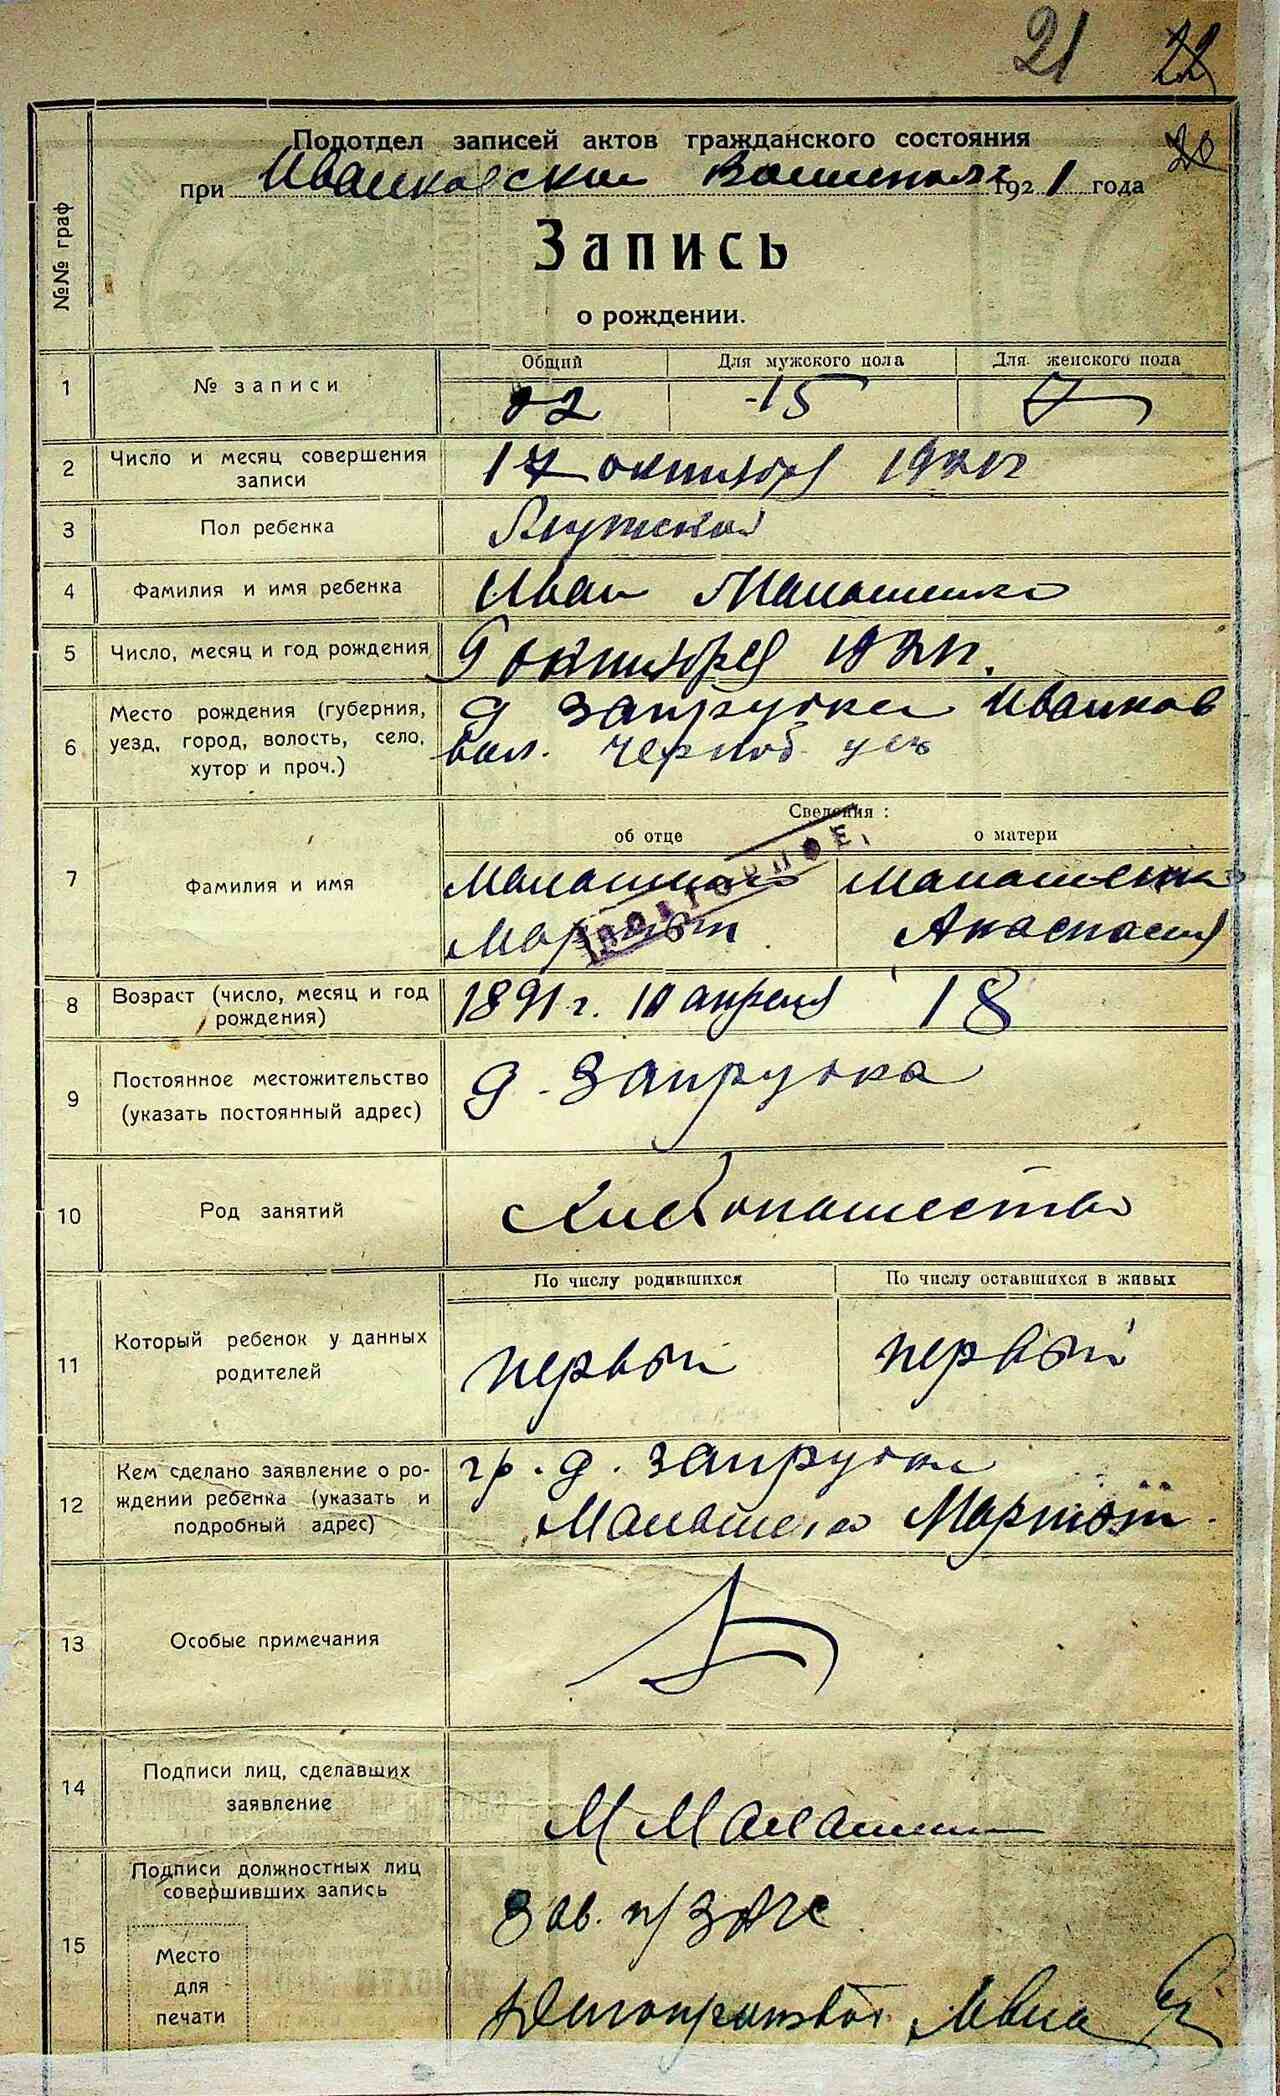 21 22
20
Подотдел записей актов гражданского состояния
при Иванковском Волисполк 1921 года
№№ граф
Запись
о рождении.
Общий Для мужского пола Для женского пола
1 № записи 22 15 7
2 Число и месяц совершения записи 17 октября 1921 г
3 Пол ребенка Мужской
4 Фамилия и имя ребенка Иван Малашенко
5 Число, месяц и год рождения 9 октября 1921 г.
6 Место рождения (губерния, уезд, город, волость, село, хутор и проч.)
д Запрудка Иванков
вол. Черноб. уез
Сведения:
об отце о матери
7 Фамилия и имя
Малашенко Малашенко
Мартын Анастасия
8 Возраст (число, месяц и год рождения) 1891 г. 10 апреля 18
9 Постоянное местожительство (указать постоянный адрес) д. Запрудка
10 Род занятий Хлебопашество
По числу родившихся По числу оставшихся в живых
11 Который ребенок у данных родителей первый первый
12 Кем сделано заявление о рождении ребенка (указать и подробный адрес)
гр. д. Запрудка
Малашенко Мартын
13 Особые примечания
14 Подписи лиц, сделавших заявление
М Малашенко
15 Подписи должностных лиц совершивших запись
Зав. п/ЗАГС
Место
для
печати
Делопроизвод.